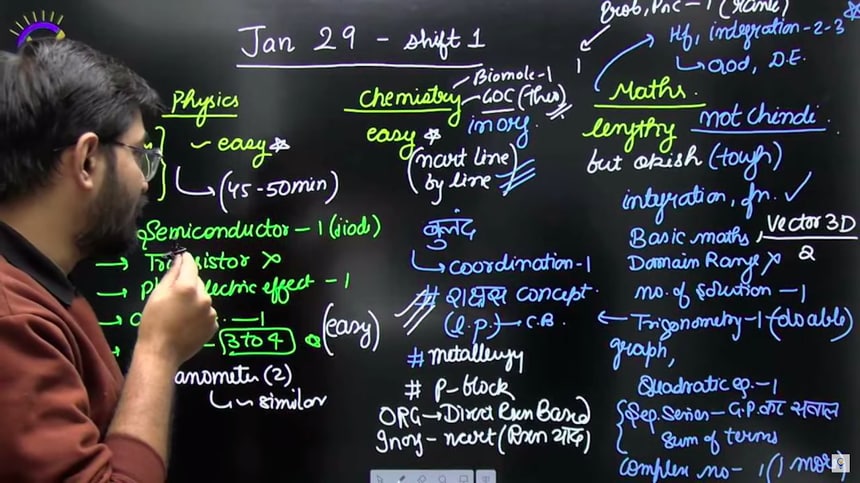 Jan 29 - shift 1
Physics
easy
(45-50min)
Semiconductor - 1 (diod)
effect - 1
1
3 to 4 (easy)
(2)
similar
Chemistry
Biomole-1
GOC (Theo)
easy
inorg.
(ncert line
by line)
coordination-1
# राक्षस concept
(l.p.) C.B.
# metallergy
# P-block
ORG → Direct Rxn Based
Inorg - ncert (Rxn याद)
Prob, Pnc - 1 (rank)
1
Hf, integration-2-3
aod, D.E.
Maths
lengthy not Chindi.
but okish (tough)
integration, fn. ✓
Basic maths, Vector 3D
2
Domain Range x
no. of solution - 1
Trigonometry-1 (doable)
graph,
Quadratic eq. - 1
Seq. Series - G.P. का सवाल
Sum of terms
Complex no - 1 (1 mor